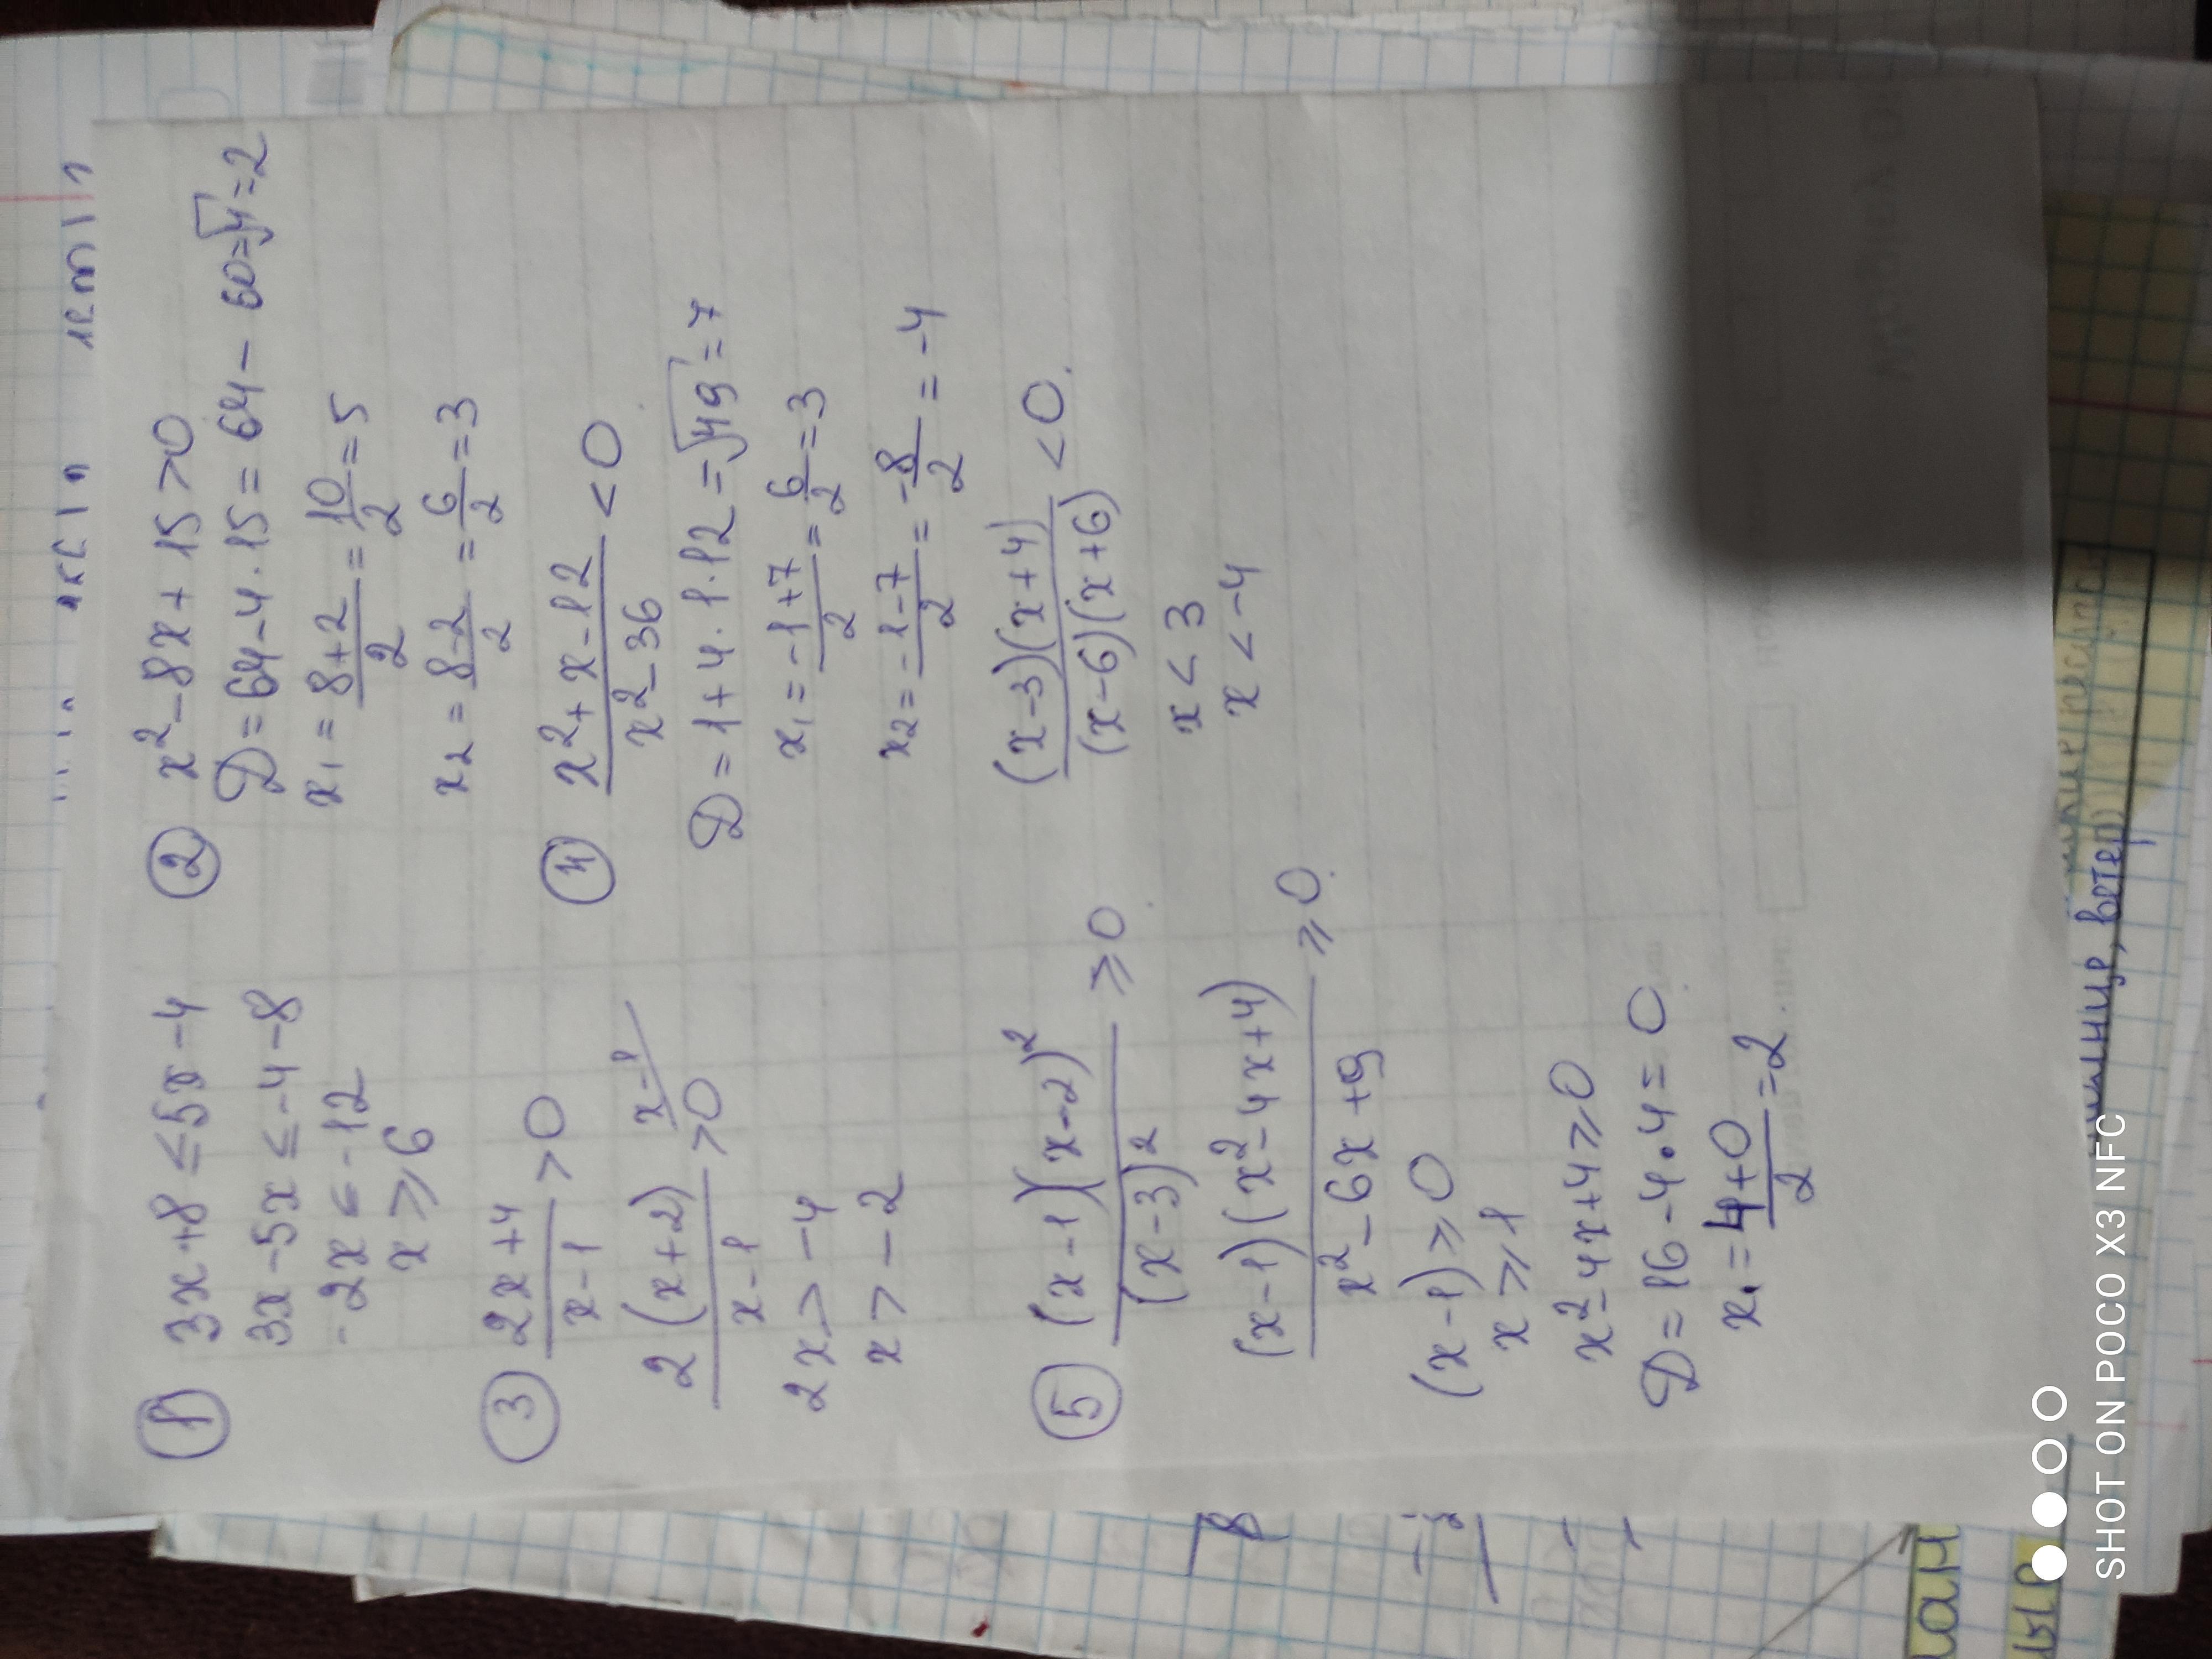 ① 3x+8 ≤ 5x-4
3x-5x ≤ -4-8
-2x ≤ -12
x ⩾ 6
② x²-8x+15>0
D=64-4·15=64-60=√4=2
x₁=(8+2)/2=10/2=5
x₂=(8-2)/2=6/2=3
③ (2x+4)/(x-1) >0
2(x+2)/(x-1) >0
2x>-4
x>-2
④ (x²+x-12)/(x²-36) <0
D=1+4·1·12=√49=7
x₁=(-1+7)/2=6/2=3
x₂=(-1-7)/2=-8/2=-4
(x-3)(x+4)/(x-6)(x+6) <0.
x<3
x<-4
⑤ (x-1)(x-2)²/(x-3)² ⩾0
(x-1)(x²-4x+4)/x²-6x+9 ⩾0.
(x-1)⩾0
x⩾1
x²-4x+4⩾0
D=16-4·4=0
x₁=(4+0)/2=2
SHOT ON POCO X3 NFC